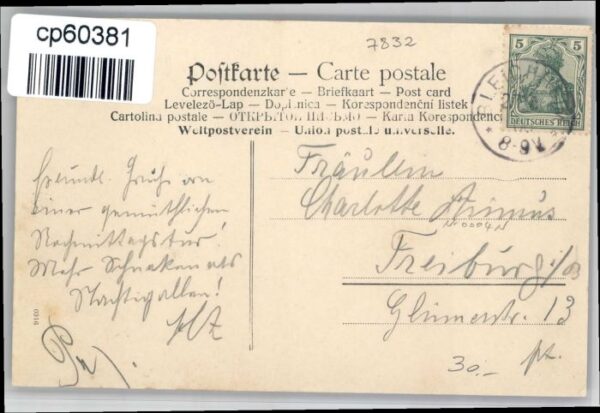 cp60381
7832
Postkarte — Carte postale
Correspondenzkarte — Briefkaart — Post card
Levelező-Lap — Dopisnica — Korespondenční listek
Cartolina postale — ОТКРЫТОЕ ПИСЬМО — Karta Korespondenc
Weltpostverein — Union postale universelle.
5
DEUTSCHES REICH
8-9V
Freundl. Grüße von
einer gemütlichen
Nachmittagstour!
Mehr Schnaken als
Nachtigallen!
Fräulein
Charlotte
Freiburg i/B
Glümerstr. 13
9100
30.-